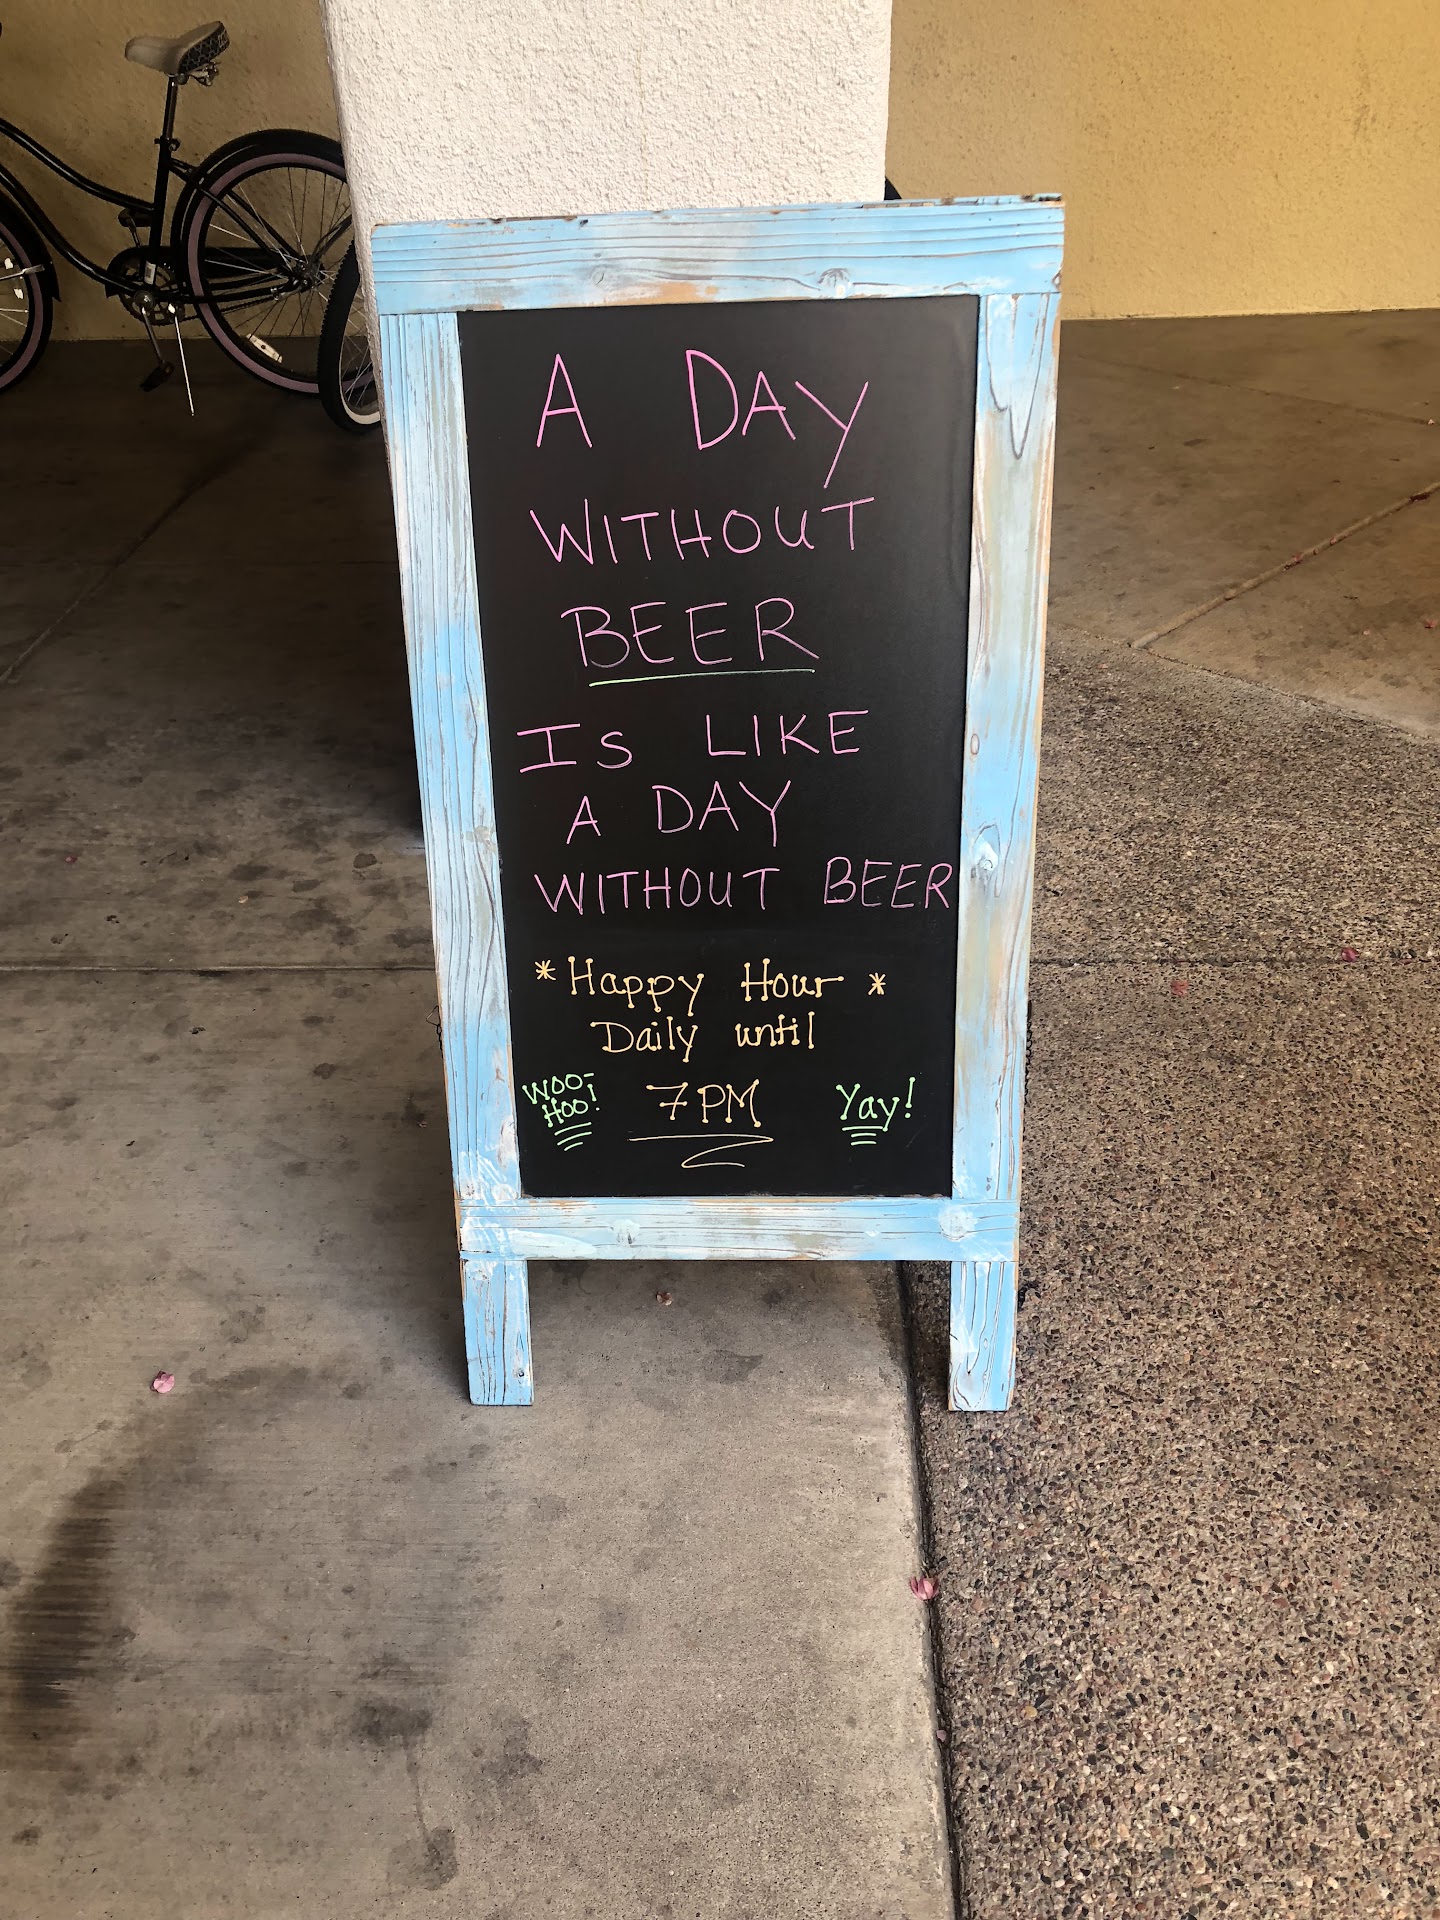 A DAY
WITHOUT
BEER
IS LIKE
A DAY
WITHOUT BEER
* Happy Hour *
Daily until
WOO-HOO! 7PM Yay!